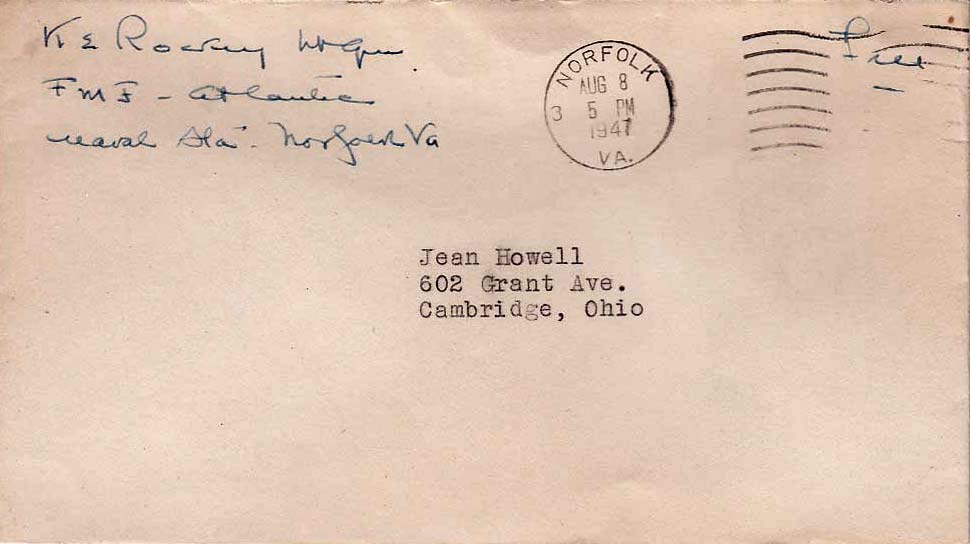 K E Rockey Lt Gen
FMF - Atlantic
Naval Sta. Norfolk Va
NORFOLK
AUG 8
3 5 PM
1947
VA.
Free
Jean Howell
602 Grant Ave.
Cambridge, Ohio